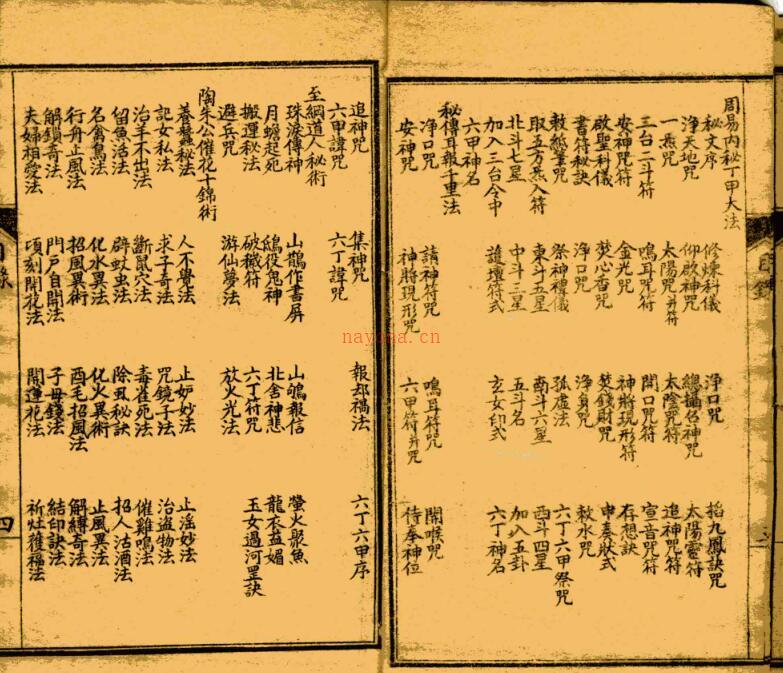 周易內秘丁甲大法
秘文序 修煉科儀 淨口咒 掐九鳳訣咒
淨天地咒 仰啟神咒 總攝召神咒 太陽靈符
一炁咒 太陽咒并符 太陰咒符 追神咒符
三台二斗符 鳴耳咒符 開口咒符 宣音咒符
安神咒符 金光咒 神將現形符 存想訣
啟聖科儀 焚心香咒 焚錢財咒 申奏狀式
書符秘訣 淨口咒 淨身咒 敕水咒
敕紙筆咒 祭神禮儀 孤虛法 六丁六甲祭咒
取五方炁入符 東斗五星 南斗六星 西斗四星
北斗七星 中斗三星 五斗名 加入五卦
加入三台令中 護壇符式 玄女印式 六丁神名
六甲神名
秘傳耳報千里法
淨口咒 請神符咒 鳴耳符咒 開喉咒
安神咒 神將現形咒 六甲符并咒 侍奉神位
追神咒 集神咒 報却禍法 六丁六甲序
六甲諱咒 六丁諱咒
至綱道人秘術
珠淚傳神 山鵲作書屏 山鳩報信 螢火聚魚
月蟾起死 鴟役鬼神 北舍神悲 龍衣益媚
搬運秘法 破穢符 六丁符咒 玉女過河罡訣
避兵咒 游仙夢法 放火光法
陶朱公催花十錦術
養蠶秘法 人不覺法 止妒妙法 止淫妙法
記女私法 求子奇法 咒鏡子法 治盜物法
治羊不出法 斷鼠穴法 毒雀死法 催雞鳴法
留魚活法 辟蚊虫法 除虱秘訣 招人沽酒法
名禽鳥法 化水異法 化火異術 止風異法
行舟止風法 招風異術 酉毛招風法 解縛奇法
解鎖奇法 門戶自開法 子母錢法 結印訣法
夫婦相愛法 頃刻開花法 開蓮花法 祈灶獲福法
四
nayona.cn